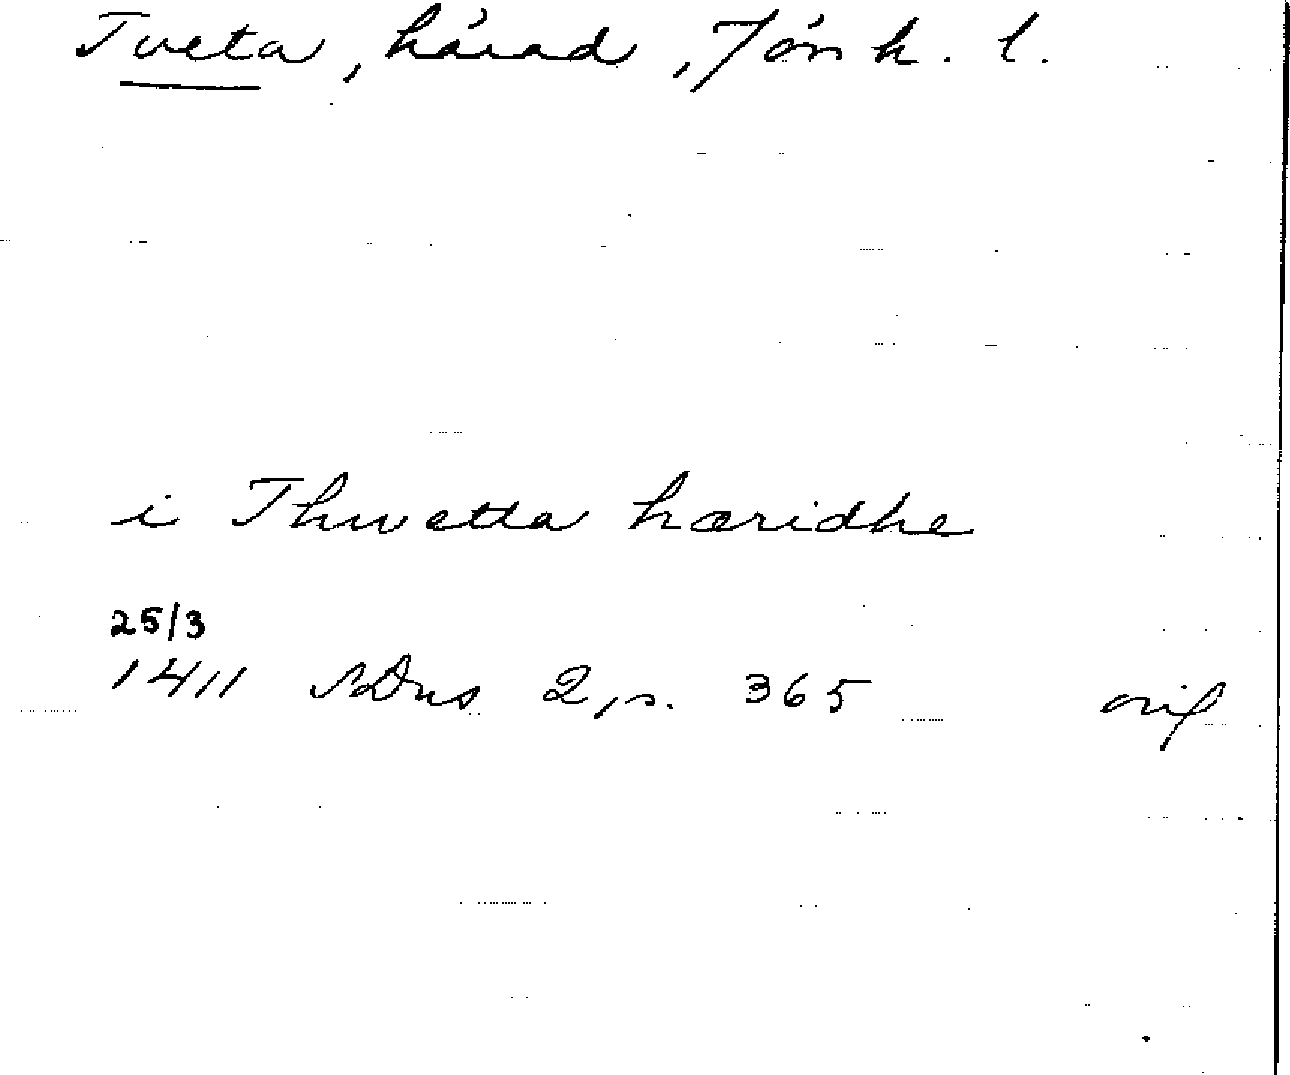 Tveta, härad, Jönk. l.
i Thwetta hæridhe
25/3
1411 SDns 2, s. 365 orig